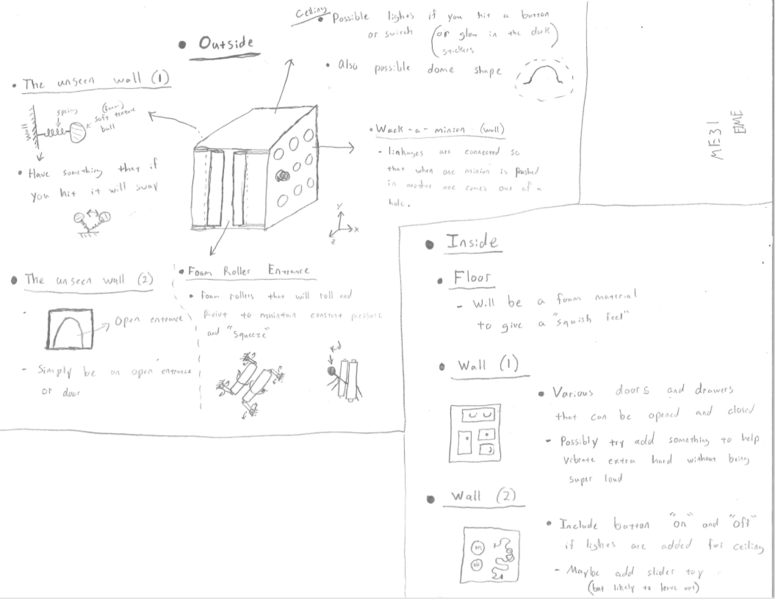 Ceiling
• Possible lights if you hit a button
or switch (or glow in the dark
stickers)
• Also possible dome shape
• Outside
• The unseen wall (1)
spring
(foam)
soft texture
ball
• Have something that if
you hit it will sway
• Wack-a-minion (wall)
- linkages are connected so
that when one minion is pushed
in another one comes out of a
hole.
y
x
z
ME31
EME
• The unseen wall (2)
Open entrance
- Simply be an open entrance
or door
• Foam Roller Entrance
• Foam rollers that will roll and
pivot to maintain constant pressure
and "squeeze"
• Inside
• Floor
- Will be a foam material
to give a "squish feel"
• Wall (1)
• Various doors and drawers
that can be opened and closed
- Possibly try add something to help
vibrate extra hard without being
super loud
• Wall (2)
• Include button "on" and "off"
if lights are added for ceiling
- Maybe add slider toy
(but likely to leave out)